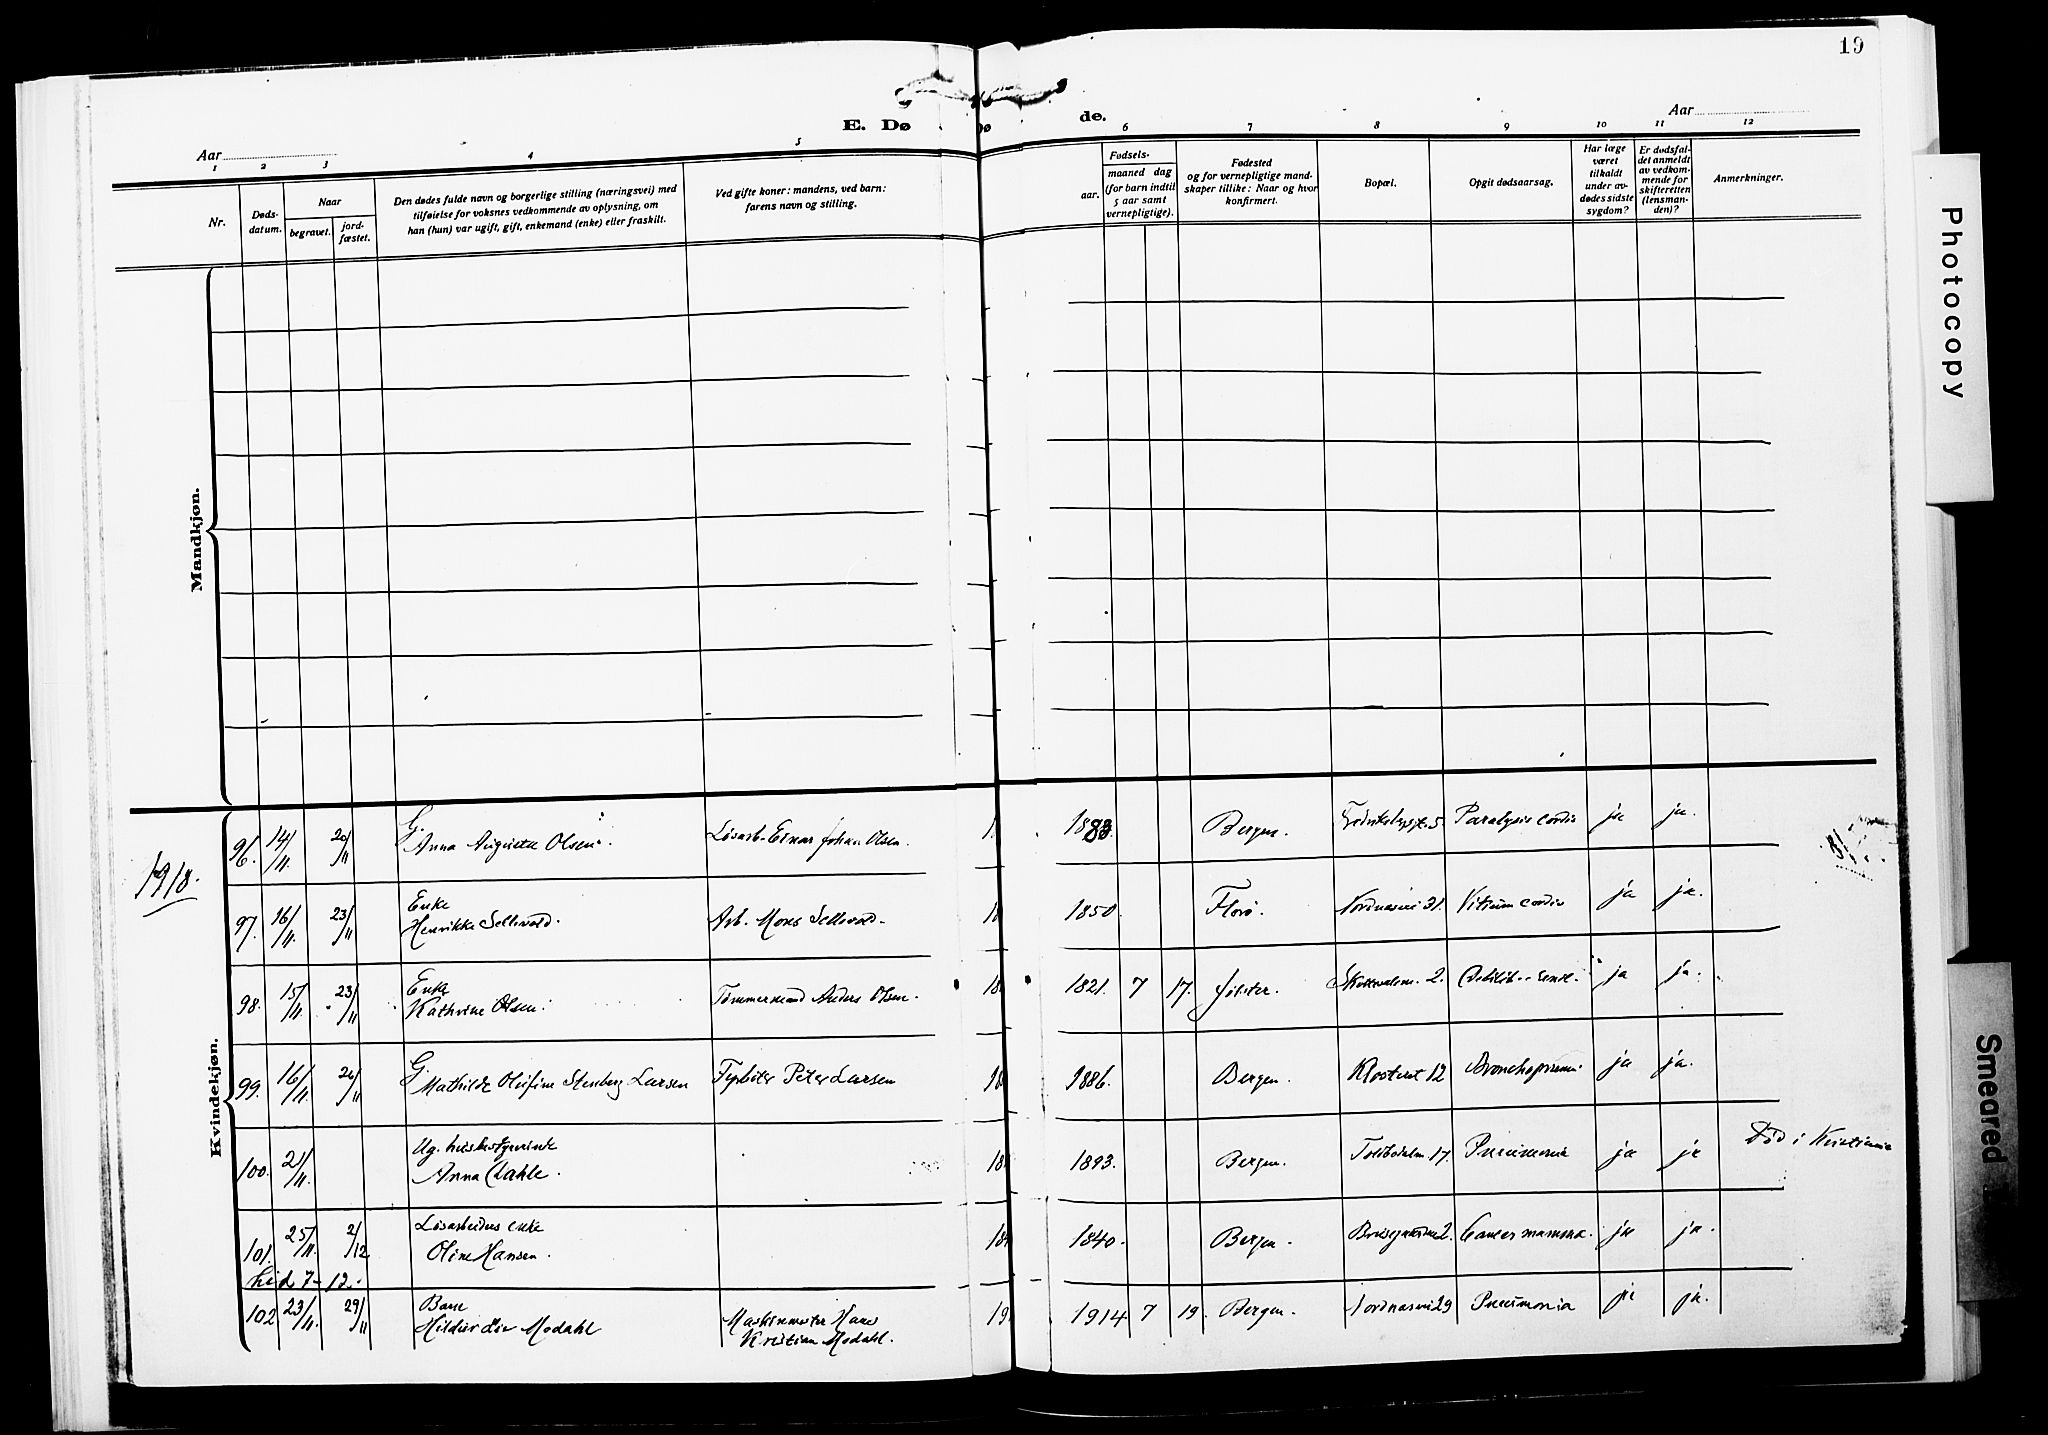 19
E. Dø de.
Aar Aar
1 2 3 4 5 6 7 8 9 10 11 12
Nr.
Døds-
datum.
Naar
begravet.
jord-
fæstet.
Den dødes fulde navn og borgerlige stilling (næringsvei) med
tilføielse for voksnes vedkommende av oplysning, om
han (hun) var ugift, gift, enkemand (enke) eller fraskilt.
Ved gifte koner: mandens, ved barn:
farens navn og stilling.
Fødsels-
aar.
maaned dag
(for barn indtil
5 aar samt
vernepligtige).
Fødested
og for vernepligtige mand-
skaper tillike: Naar og hvor
konfirmert.
Bopæl.
Opgit dødsaarsag.
Har læge
været
tilkaldt
under av-
dødes sidste
sygdom?
Er dødsfal-
det anmeldt
av vedkom-
mende for
skifteretten
(lensman-
den)?
Anmerkninger.
Mandkjøn.
Kvindekjøn.
1918.
G.
96. 14/11. 20/11 Anna Augusta Olsen. Løsarb. Einar Johan Olsen. 1883. Bergen. Paralysis cordis ja ja.
Enke
97. 16/11. 23/11 Henrikke Sellevold. Arb. Mons Sellevold. 1850. Florø. Nordnæsvei 31. Vitium cordis ja ja.
Enke
98. 15/11. 23/11 Kathrine Olsen. Tømmermand Anders Olsen. 1821. 7 17. Jølster. 2. ja ja.
G.
99. 16/11. 26/11 Mathilde Olufine Stenberg Larsen Fyrbøter Peter Larsen 1886. Bergen. Klosteret 12 Bronchopneum. ja ja.
Ug. husbestyrerinde
100. 21/11. Anna Dahle. 1893. Bergen. Toldbodalm. 17. Pneumonia ja ja Død i Kristiania
Løsarbeiders enke
101. 25/11. 2/12 Oline Hansen. 1840. Bergen. 2. Cancer mamma. ja ja.
hid 7-12.
Barn
102 23/11. 29/11 Hildur Modahl Maskinmester Hans
Kristian Modahl. 1914 7 19. Bergen. Nordnæsvei 29 Pneumonia ja ja.
Photocopy
Smeared